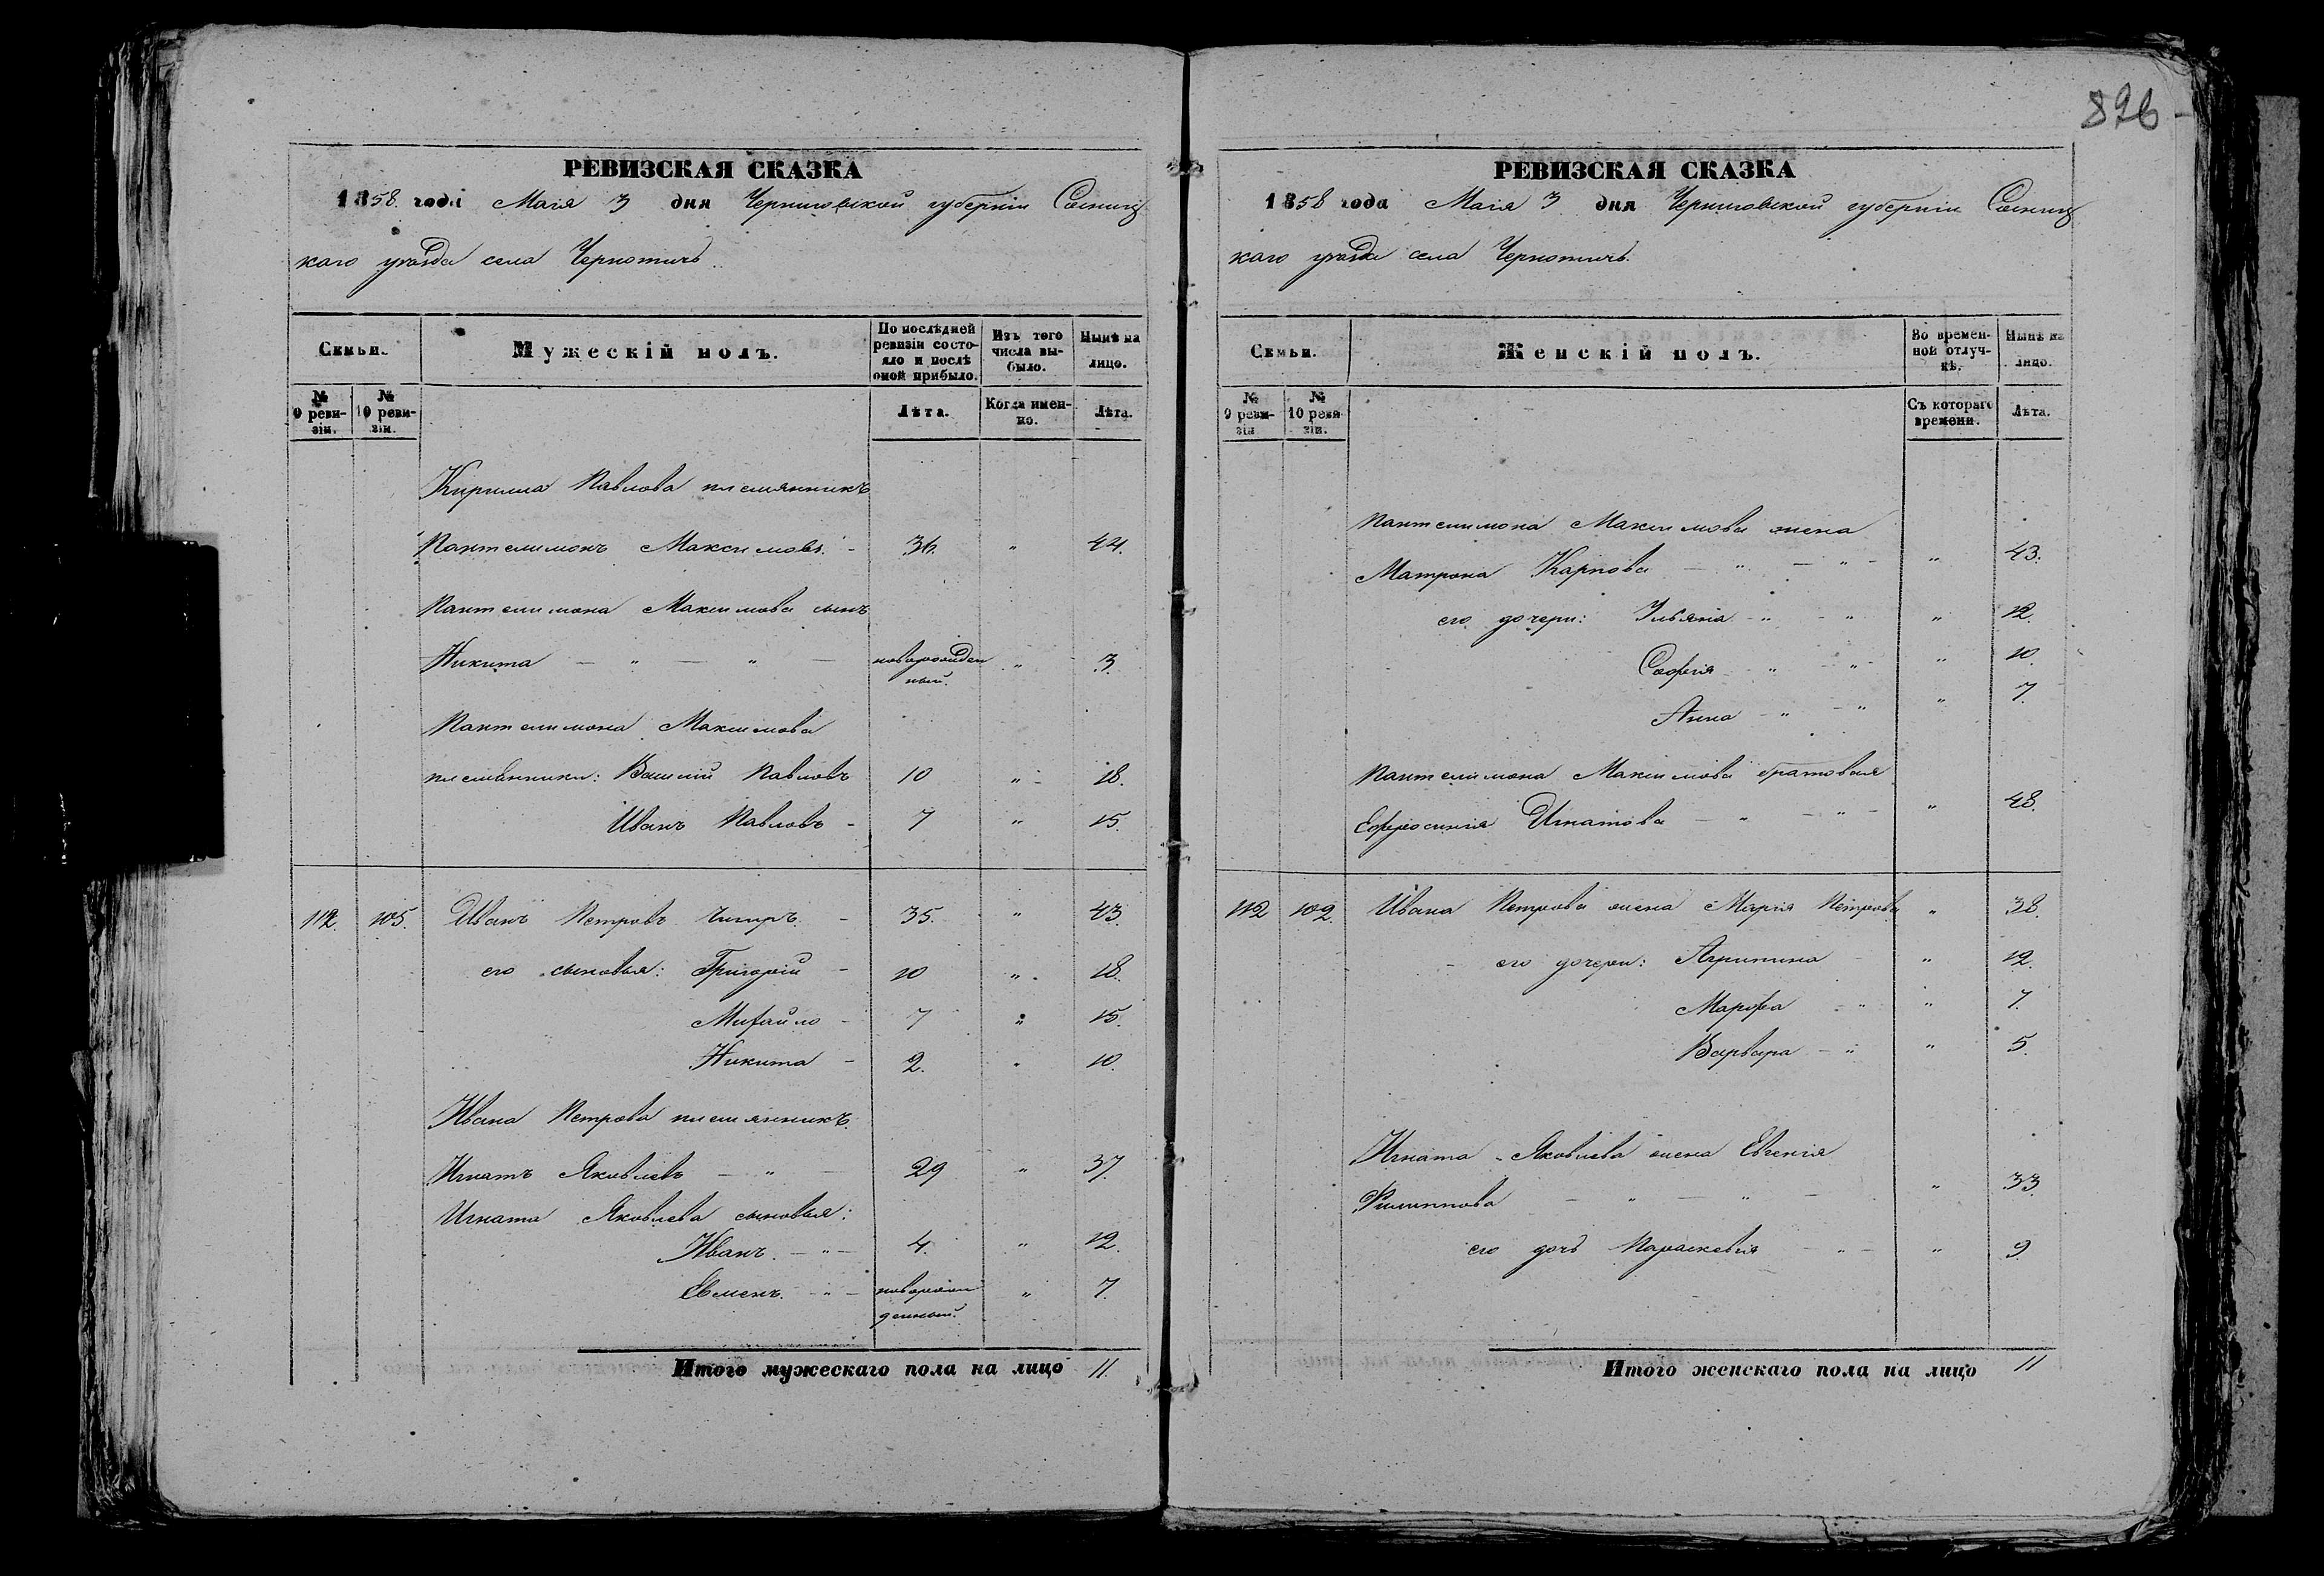 826
РЕВИЗСКАЯ СКАЗКА
1858 года Маія 3 дня Черниговской губерніи Сосниц
каго уѣзда села Чернотичь.
Семьи.
Мужескій полъ.
По послѣдней ревизіи состояло и послѣ оной прибыло.
Изъ того числа выбыло.
Нынѣ на лицо.
№ 9 ревизіи.
№ 10 ревизіи.
Лѣта.
Когда именно.
Лѣта.
Кирилла Павлова племянникъ
Пантелимонъ Максимовъ - 36. " 44.
Пантелимона Максимова сынъ
Никита — " — " — новорожден " 3.
ный.
Пантелимона Максимова
племянники: Василій Павловъ 10 " 18.
Иванъ Павловъ - 7 " 15.
112. 105. Иванъ Петровъ Чигиръ. - 35. " 43.
его сыновья: Григорій - 10 " 18.
Михайло - 7 " 15.
Никита - 2. " 10.
Ивана Петрова племянникъ
Игнатъ Яковлевъ — " — 29 " 37.
Игната Яковлева сыновья:
Иванъ. - " - 4. " 12.
Евменъ. - " - новорож " 7.
денный.
Итого мужескаго пола на лицо 11.
РЕВИЗСКАЯ СКАЗКА
1858 года Маія 3 дня Черниговской губерніи Сосниц
каго уѣзда села Чернотичь.
Семьи.
Женскій полъ.
Во временной отлучкѣ.
Нынѣ на лицо.
№ 9 ревизіи
№ 10 ревизіи.
Съ котораго времени.
Лѣта.
Пантелимона Максимова жена
Матрона Карпова — " — " - " 43.
его дочери: Ульяна - " - " " 12.
Софія - " - " " 10.
Анна - " - " " 7.
Пантелимона Максимова братовая
Ефросинія Игнатова — " — " - " 48.
112 102. Ивана Петрова жена Марія Петрова " 38.
его дочери: Агрипина - " 12.
Марфа - " " 7.
Варвара - " " 5.
Игната Яковлева жена Евгенія
Филиппова — " — " — " 33.
его дочь Параскевія - " - " 9
Итого женскаго пола на лицо 11